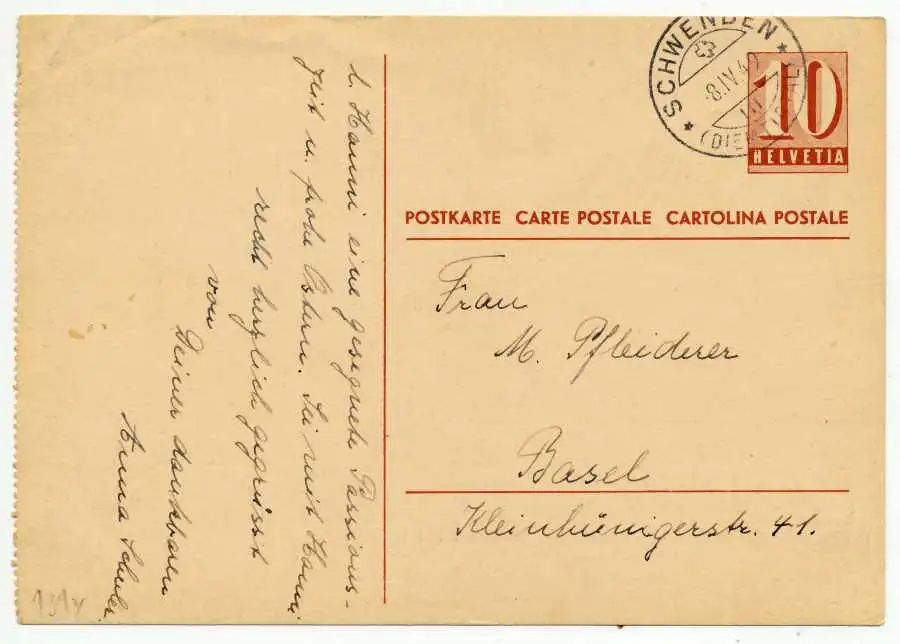 SCHWENDEN
8.IV.4
10
HELVETIA
POSTKARTE CARTE POSTALE CARTOLINA POSTALE
Frau
M. Pfleiderer
Basel
Kleinhünigerstr. 41.
l. Hanni eine gesegnete Passions-
zeit u. frohe Ostern. Sei mit Hanni
recht herzlich gegrüsst
von
Deiner dankbaren
Anna